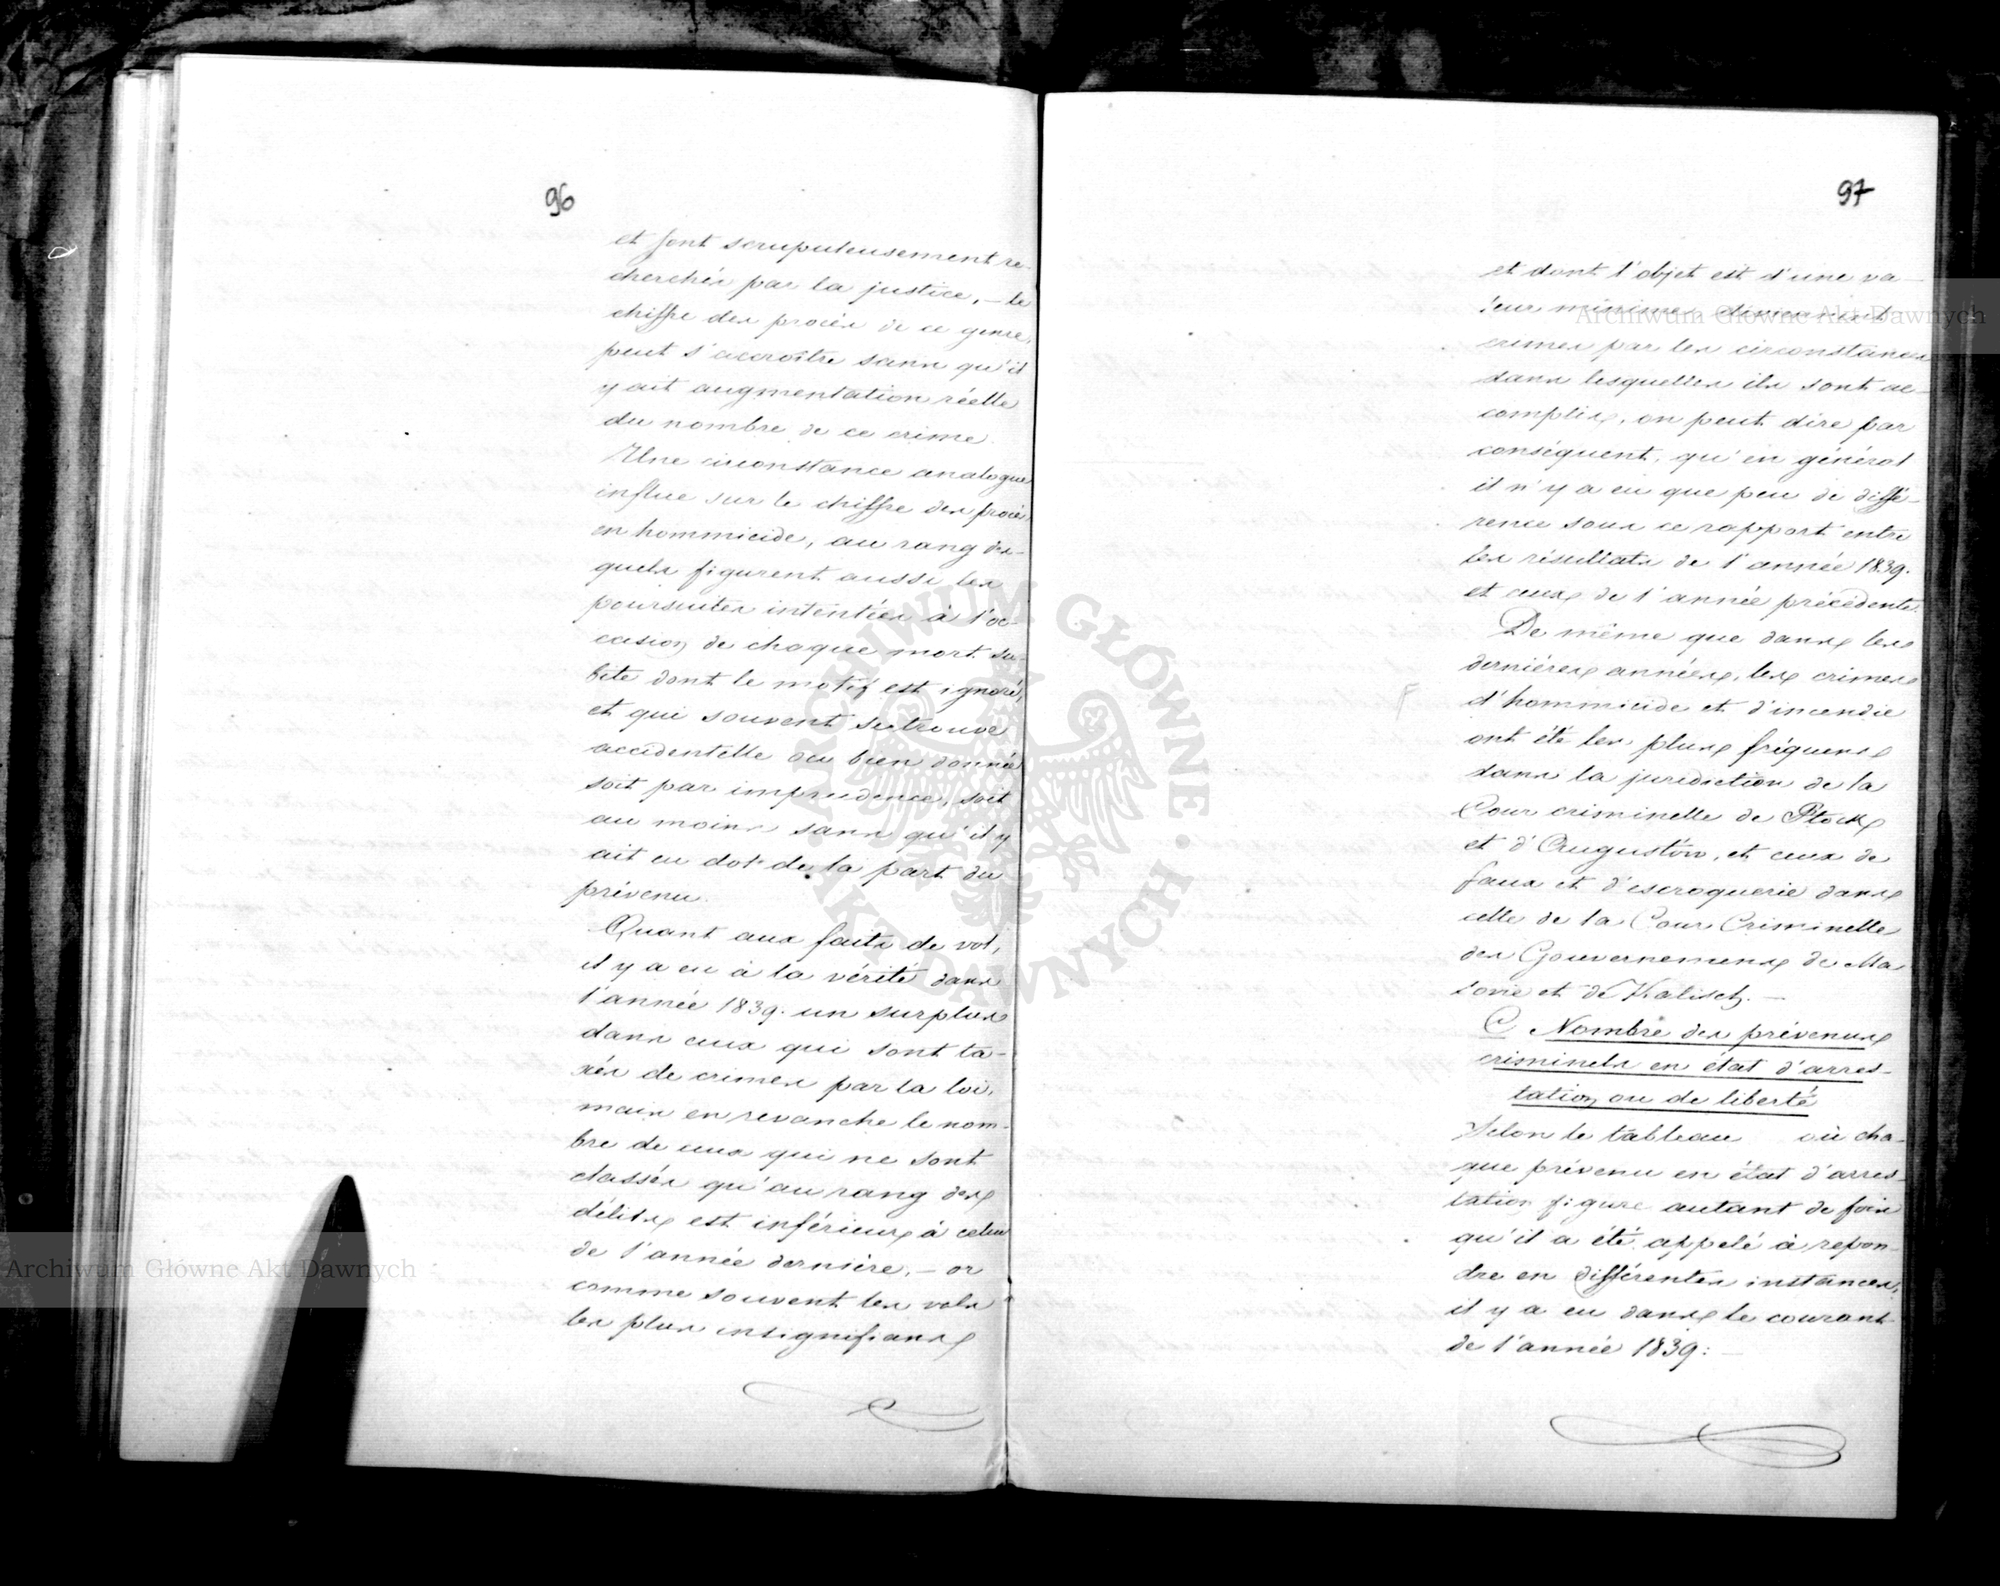 96
et sont scrupuleusement re-
cherchés par la justice, – le
chiffre des procès de ce genre,
peut s'accroître sans qu'il
y ait augmentation réelle
du nombre de ce crime.
Une circonstance analogue
influe sur le chiffre des procès
en hommicide, au rang des-
quels figurent aussi les
poursuites intentées à l'oc-
casion de chaque mort su-
bite dont le motif est ignoré,
et qui souvent se trouve
accidentelle ou bien donnée
soit par imprudence, soit
au moins sans qu'il y
ait eu dol de la part du
prévenu.
Quant aux faits de vol,
il y a eu à la vérité dans
l'année 1839. un surplus
dans ceux qui sont ta-
xés de crimes par la loi,
mais en revanche le nom-
bre de ceux qui ne sont
classés qu'au rang des
délits est inférieur à celui
de l'année dernière, – or
comme souvent les vols
les plus insignifians
97
et dont l'objet est d'une va-
leur minime, deviennent
crimes par les circonstances
dans lesquelles ils sont ac-
complis, on peut dire par
conséquent, qu'en général
il n'y a eu que peu de diffé-
rence sous ce rapport entre
les résultats de l'année 1839.
et ceux de l'année précédente.
De même que dans les
dernières années, les crimes
d'hommicide et d'incendie
ont été les plus fréquens
dans la juridiction de la
Cour criminelle de Plock
et d'Augustów, et ceux de
faux et d'escroquerie dans
celle de la Cour Criminelle
des Gouvernemens de Ma
sovie et de Kalisch. –
C Nombre des prévenus
criminels en état d'arres-
tation ou de liberté
Selon le tableau où cha-
que prévenu en état d'arres-
tation figure autant de fois
qu'il a été appelé à repon-
dre en différentes instances,
il y a eu dans le courant
de l'année 1839: –
Archiwum Główne Akt Dawnych
Archiwum Główne Akt Dawnych
ARCHIWUM GŁÓWNE · AKT DAWNYCH ·